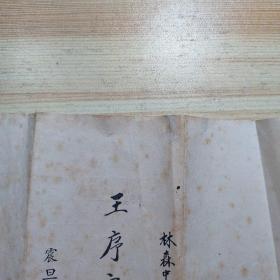 林森中
王序
震旦